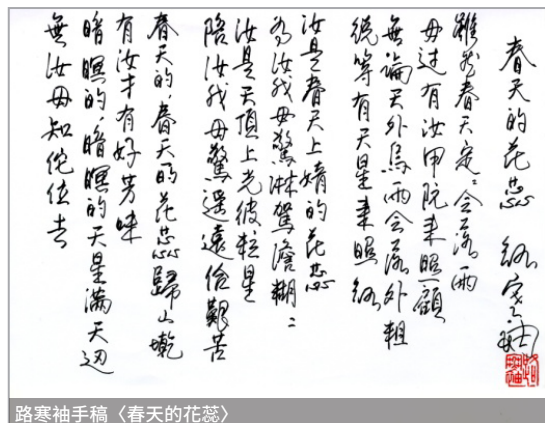 春天的花蕊 路寒袖
雖然春天定定會落雨
毋过有汝甲阮來照顧
無論天外烏雨會落外粗
總等有天星來照路
汝是春天上婧的花蕊
為汝我毋驚淋駕澹糊糊
汝是天頂上光彼粒星
陪汝我毋驚遥遠佮艱苦
春天的,春天的花蕊歸山墘
有汝才有好芳味
暗暝的,暗暝的天星滿天边
無汝毋知佗位去
路寒袖手稿〈春天的花蕊〉